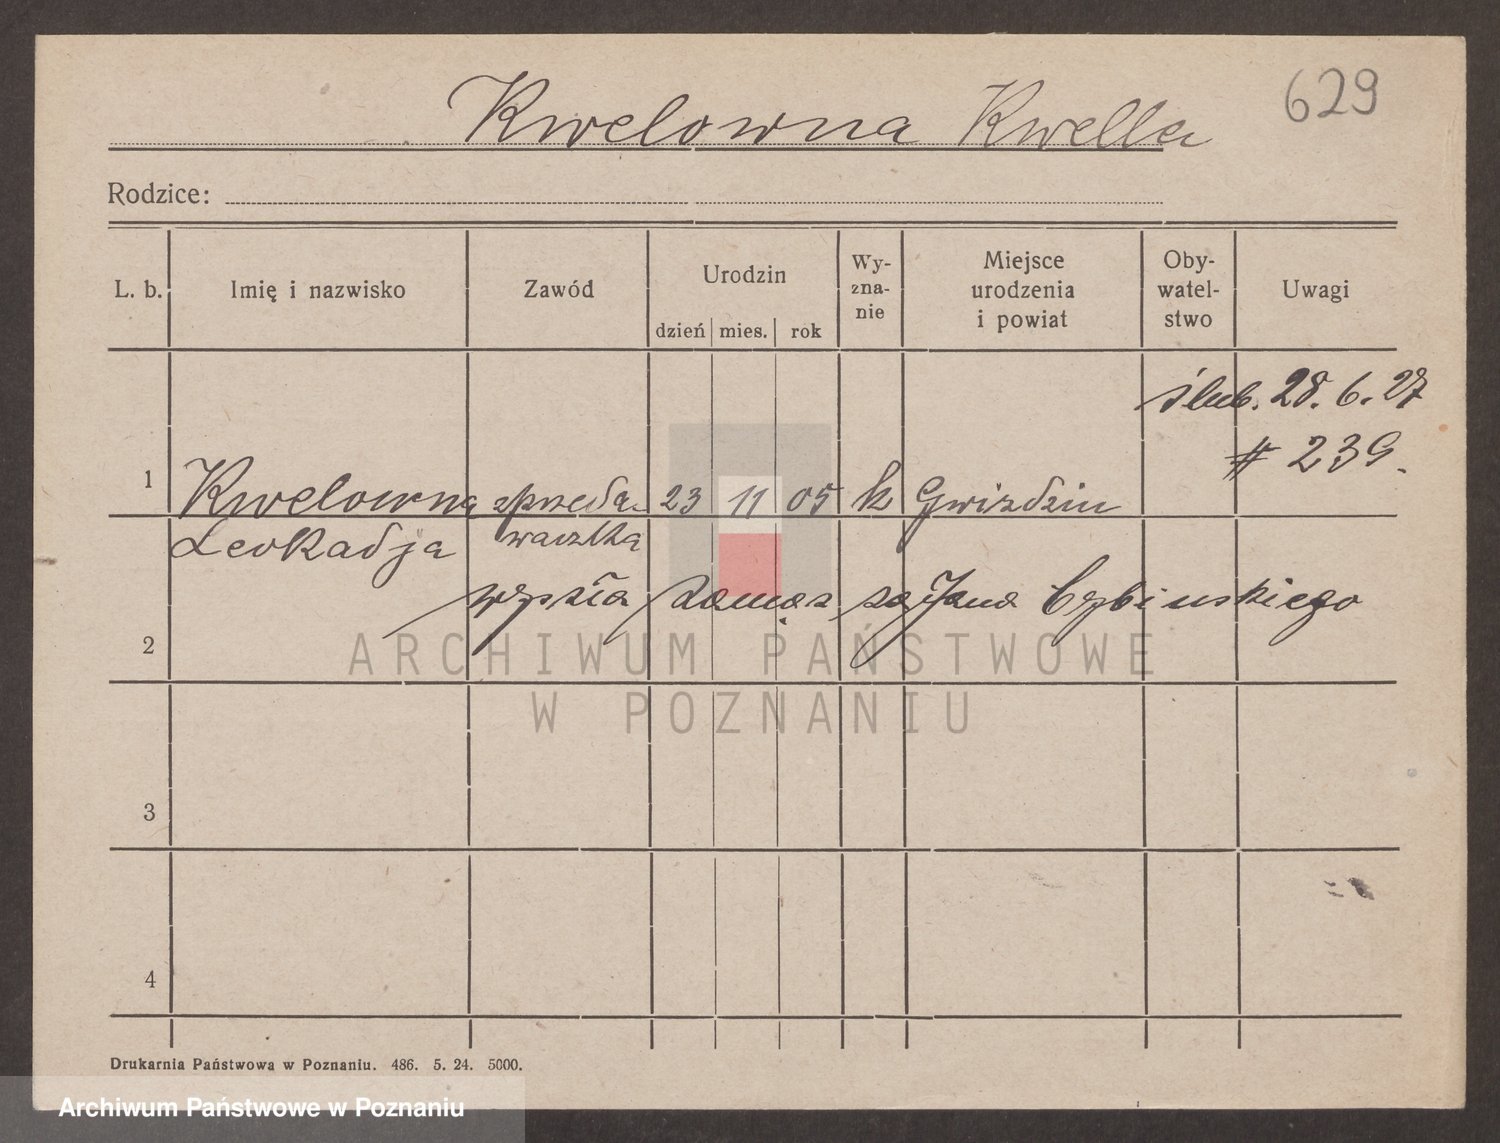 629
Kwelowna Kwella
Rodzice:
L. b. Imię i nazwisko Zawód Urodzin dzień mies. rok Wy-zna-nie Miejsce urodzenia i powiat Oby-watel-stwo Uwagi
ślub. 28. 6. 27
# 239.
1 Kwelowna sprzeda- 23 11 05 k Gwizdzin
Leokadja waczka
wyszła zamąż za Jana Cybinskiego
2
ARCHIWUM PAŃSTWOWE
W POZNANIU
3
4
Drukarnia Państwowa w Poznaniu. 486. 5. 24. 5000.
Archiwum Państwowe w Poznaniu